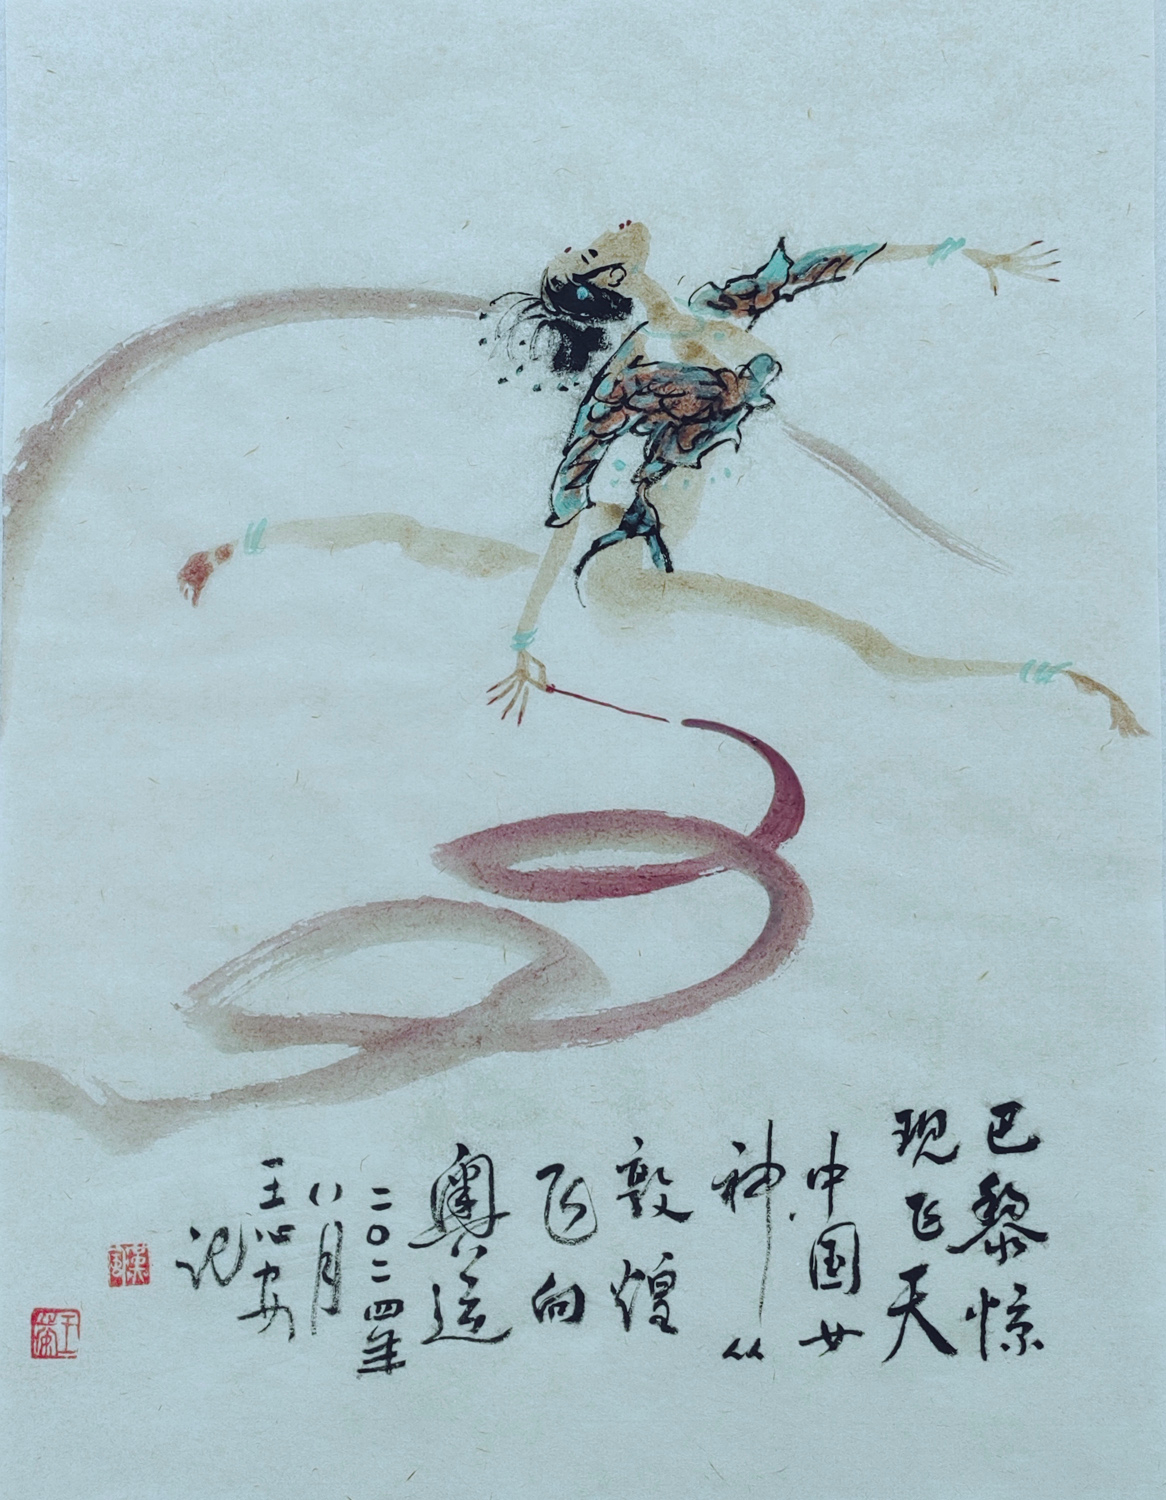 巴黎惊
现飞天
中国女
神从
敦煌
飞向
奥运
二〇二四年
八月
王心安
记